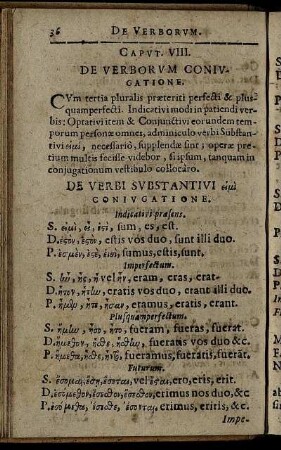 36 DE VERBORVM.
CAPVT. VIII.
DE VERBORVM CONIV-
GATIONE.
CVm tertia pluralis præteriti perfecti & plus-
quamperfecti. Indicativi modi in patiendi ver-
bis: Optativi item & Conjunctivi eorundem tem-
porum personæ omnes, adminiculo verbi Substan-
tivi εἰμὶ, necessariò, supplendæ sint; operæ pre-
tium multis fecisse videbor, si ipsum, tanquam in
conjugationum vestibulo collocâro.
DE VERBI SVBSTANTIVI εἰμὶ
CONIVGATIONE.
Indicativi præsens.
S. εἰμὶ, εἶ, ἐστὶ, sum, es, est.
D. ἐστὸν, ἐστὸν, estis vos duo, sunt illi duo.
P. ἐσμὲν, ἐστὲ, εἰσὶ, sumus, estis, sunt.
Imperfectum.
S. ἦν, ἦς, ἦ vel ἦν, eram, eras, erat.
D. ἦτον, ἤτην, eratis vos duo, erant illi duo.
P. ἦμεν, ἦτε, ἦσαν, eramus, eratis, erant.
Plusquamperfectum.
S. ἤμην, ἦσο, ἦτο, fueram, fueras, fuerat.
D. ἤμεθον, ἦσθον, ἤσθην, fueratis vos duo &c.
P. ἤμεθα, ἦσθε, ἦντο, fueramus, fueratis, fuerāt.
Futurum.
S. ἔσομαι, ἔσῃ, ἔσεται, vel ἔσται, ero, eris, erit.
D. ἐσόμεθον, ἔσεσθον, ἔσεσθον, erimus nos duo, &c
P. ἐσόμεθα, ἔσεσθε, ἔσονται, erimus, eritis, &c.
Impe-